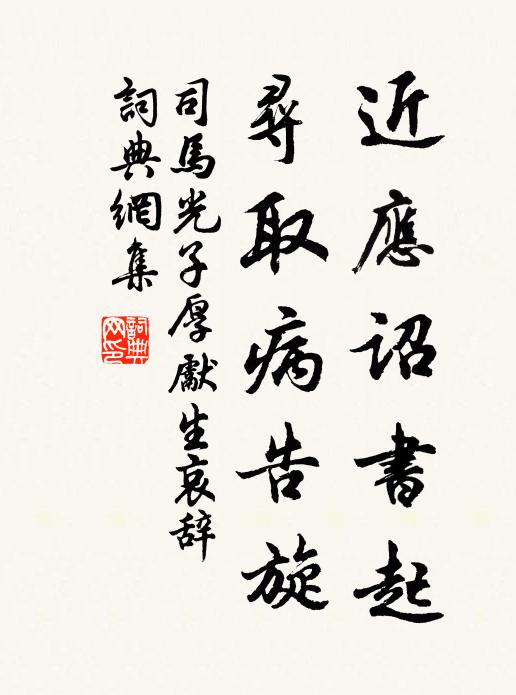 近應詔書起
尋取病告旋
司馬光子厚獻生哀辞
詞典網集
詞典網印